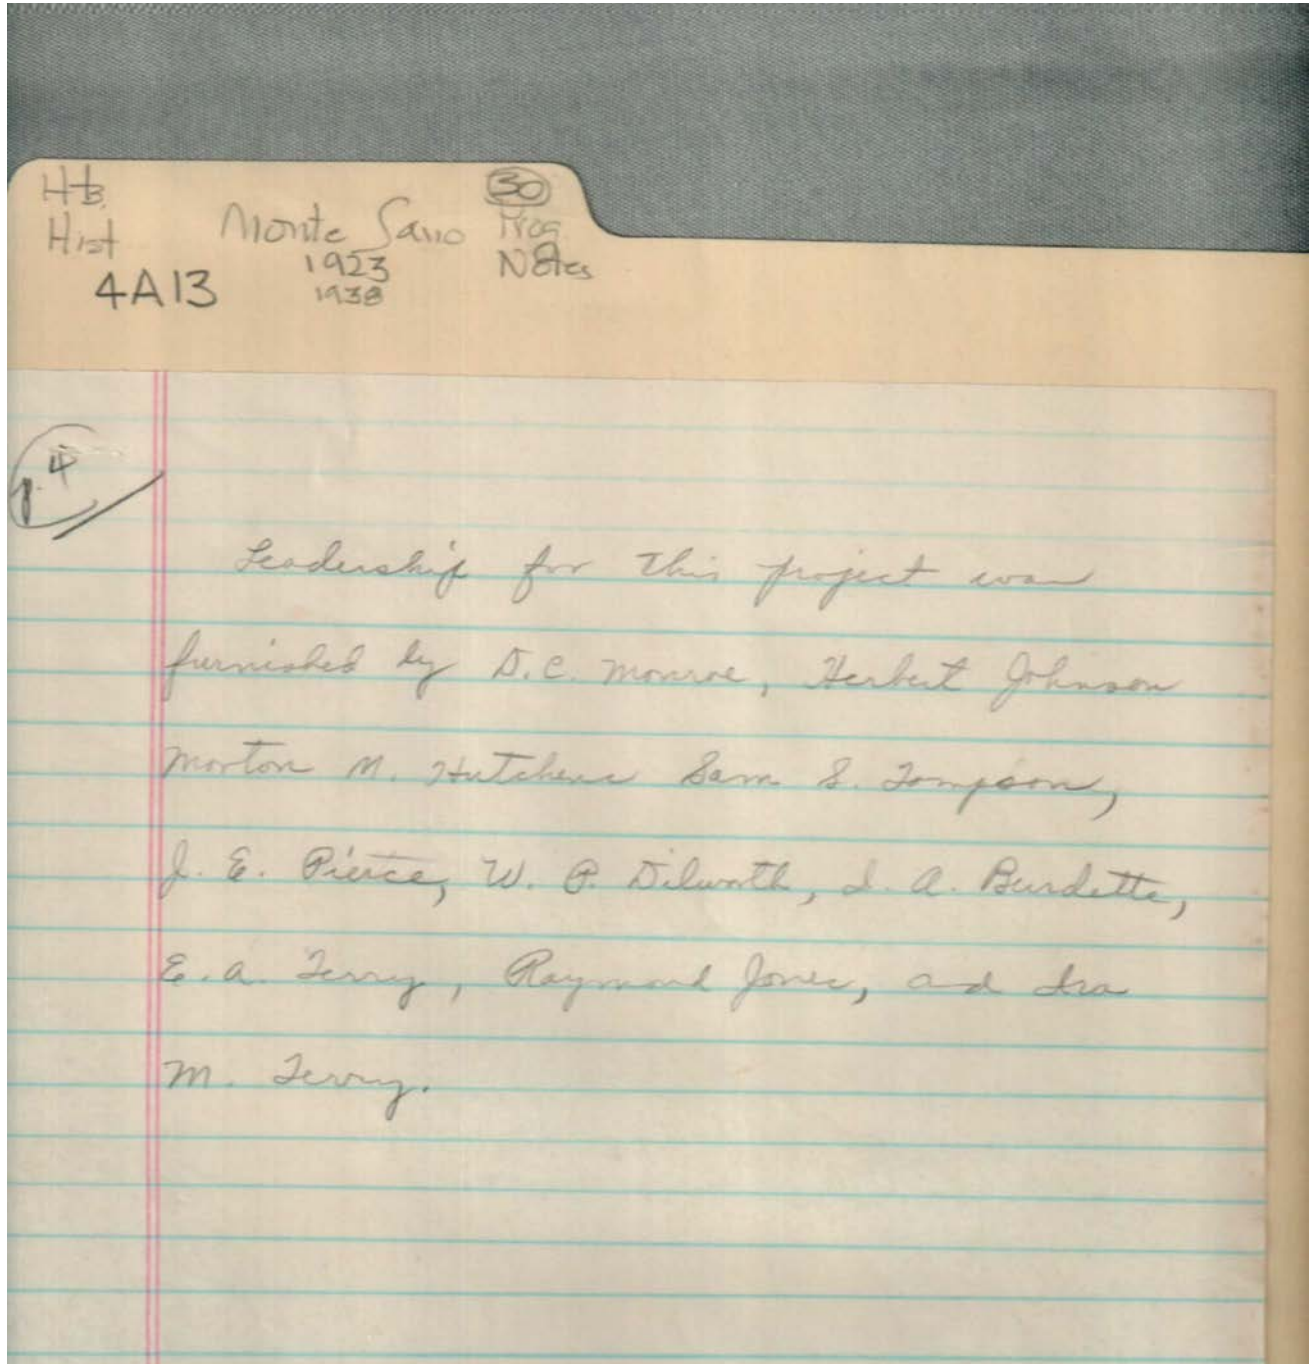 Htb.
Hist
Monte Sano
1923
1938
30
Prog
Notes
4A13
p. 4
Leadership for this project was
furnished by D. C. Monroe, Herbert Johnson
Morton M. Hutchens Sam S. Tompson,
J. E. Pierce, W. P. Dilworth, I. A. Burdette,
E. A. Terry, Raymond Jones, and Ira
M. Terry.